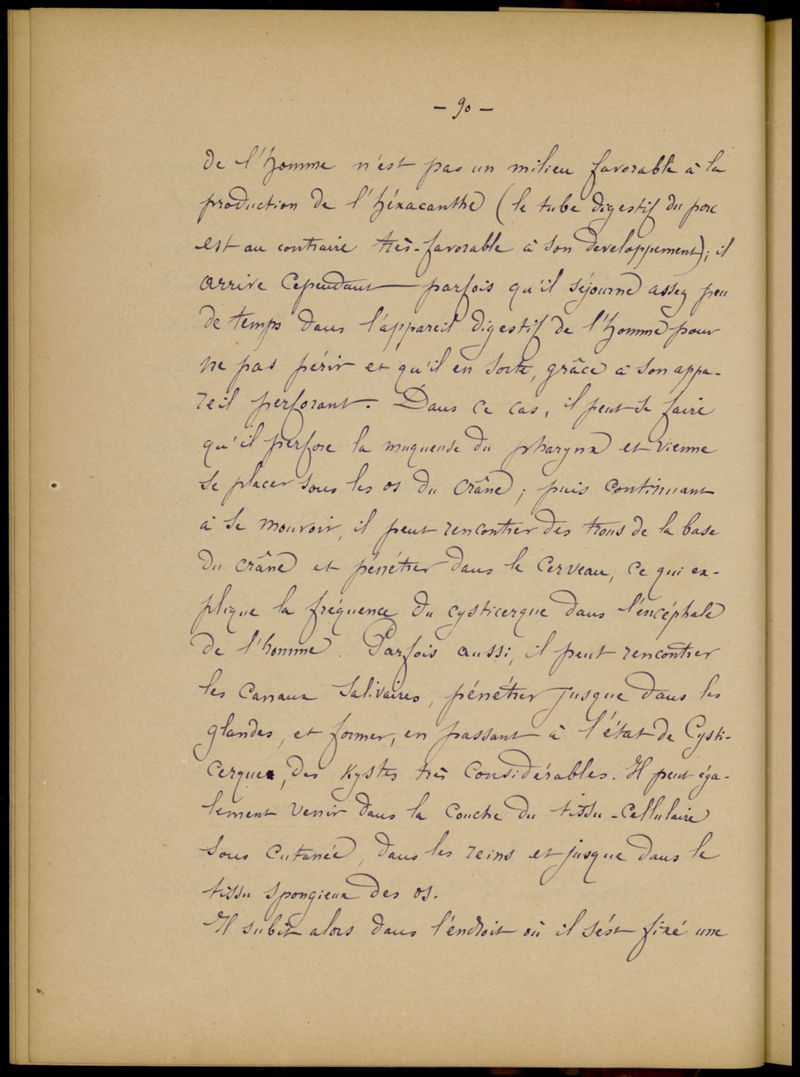 - 90 -
de l'homme n'est pas un milieu favorable à la
production de l'héxacanthe (le tube digestif du porc
est au contraire très-favorable à son developpement); il
arrive cependant parfois qu'il séjourne assez peu
de temps dans l'appareil digestif de l'homme pour
ne pas périr et qu'il en sorte, grâce à son appa-
reil perforant. Dans ce cas, il peut se faire
qu'il perfore la muqueuse du pharynx et vienne
se placer sous les os du crâne; puis continuant
à se mouvoir, il peut rencontrer des trous de la base
du crâne et pénétrer dans le cerveau, ce qui ex-
plique la fréquence du cysticerque dans l'encéphale
de l'homme. Parfois aussi, il peut rencontrer
les canaux salivaires, pénétrer jusque dans les
glandes, et former, en passant à l'état de Cysti-
cerque, des Kystes très considérables. Il peut éga-
lement venir dans la couche du tissu-cellulaire
sous cutanée, dans les reins et jusque dans le
tissu spongieux des os.
Il subit alors dans l'endroit où il s'ést fixé une